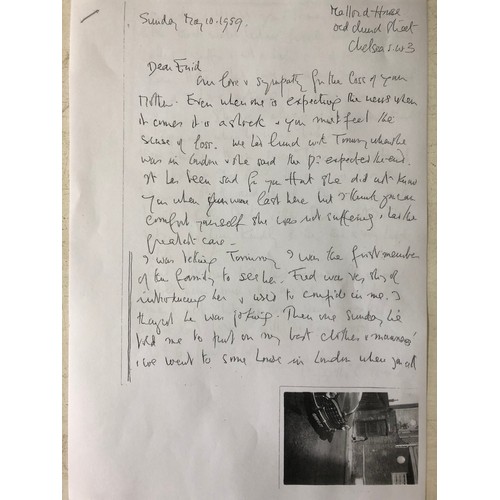 Sunday May 10. 1959.
Mallord House
Old Church Street
Chelsea S.W3
Dear Enid
Our love & sympathy for the loss of your
Mother. Even when one is expecting the news when
it comes it is a shock & you must feel the
sense of loss. We had lunch with Tommy when she
was in London & she said the Dr expected the end.
It has been sad for you that she did not know
you when you were last here but I think you can
comfort yourself she was not suffering, & had the
greatest care.
I was telling Tommy I was the first member
of the family to see her. Fred was very shy of
introducing her & used to confide in me. I
thought he was joking. Then one Sunday he
told me to put on my best clothes & manners
& we went to some house in London where you all